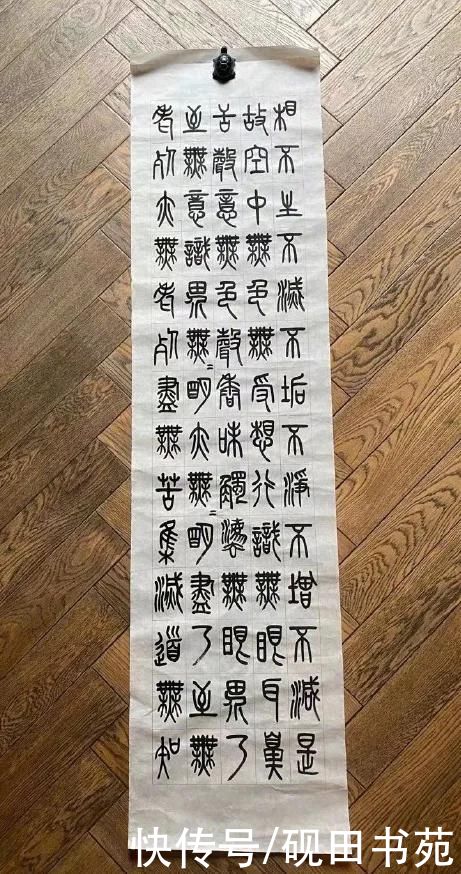 相不生不滅不垢不淨不增不減是
故空中無色無受想行識無眼耳鼻
舌聲意無色聲香味觸法無眼界乃
至無意識界無=明亦無=明盡乃至無
老死亦無老死盡無苦集滅道無知
快传号/砚田书苑